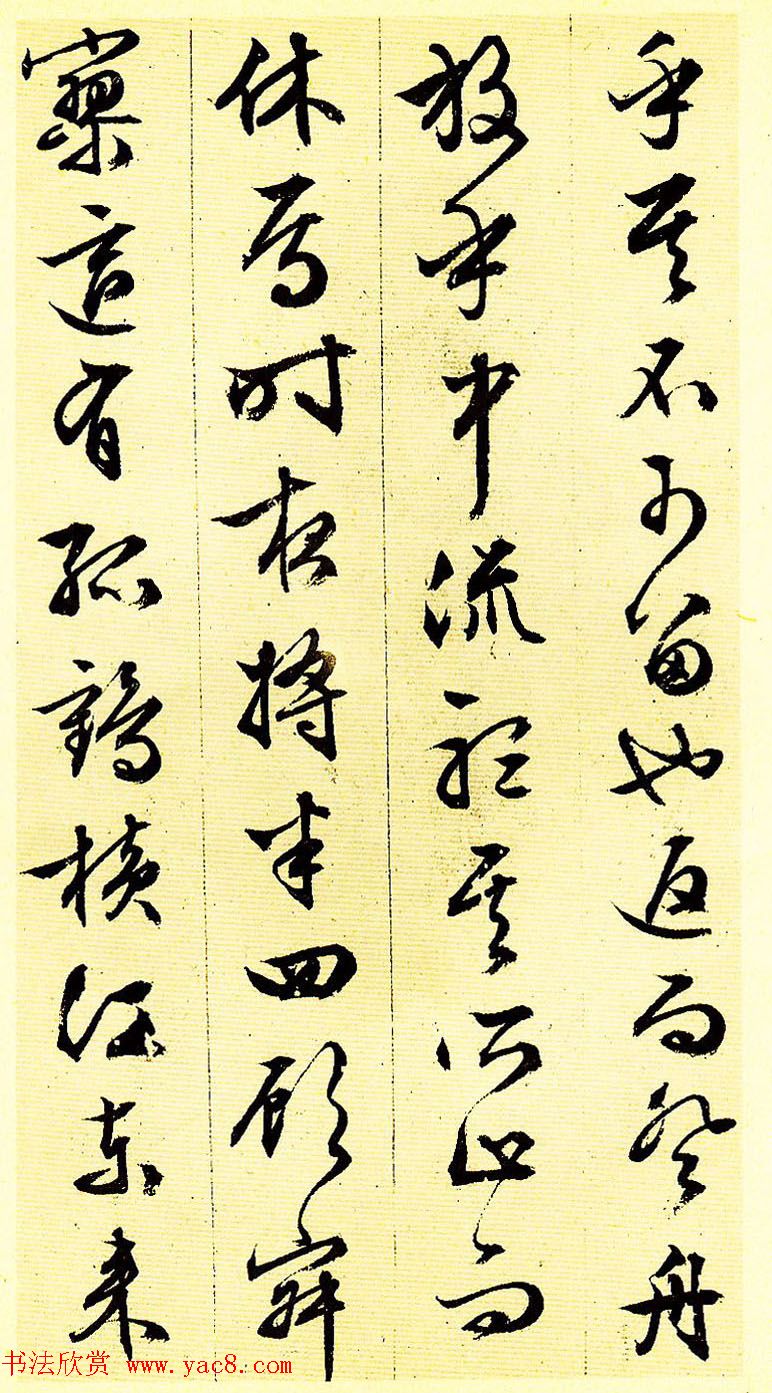 乎其不可留也返而登舟
放乎中流聽其所止而
休焉時夜將半四顧寂
寥適有孤鶴橫江東來
书法欣赏 www.yac8.com